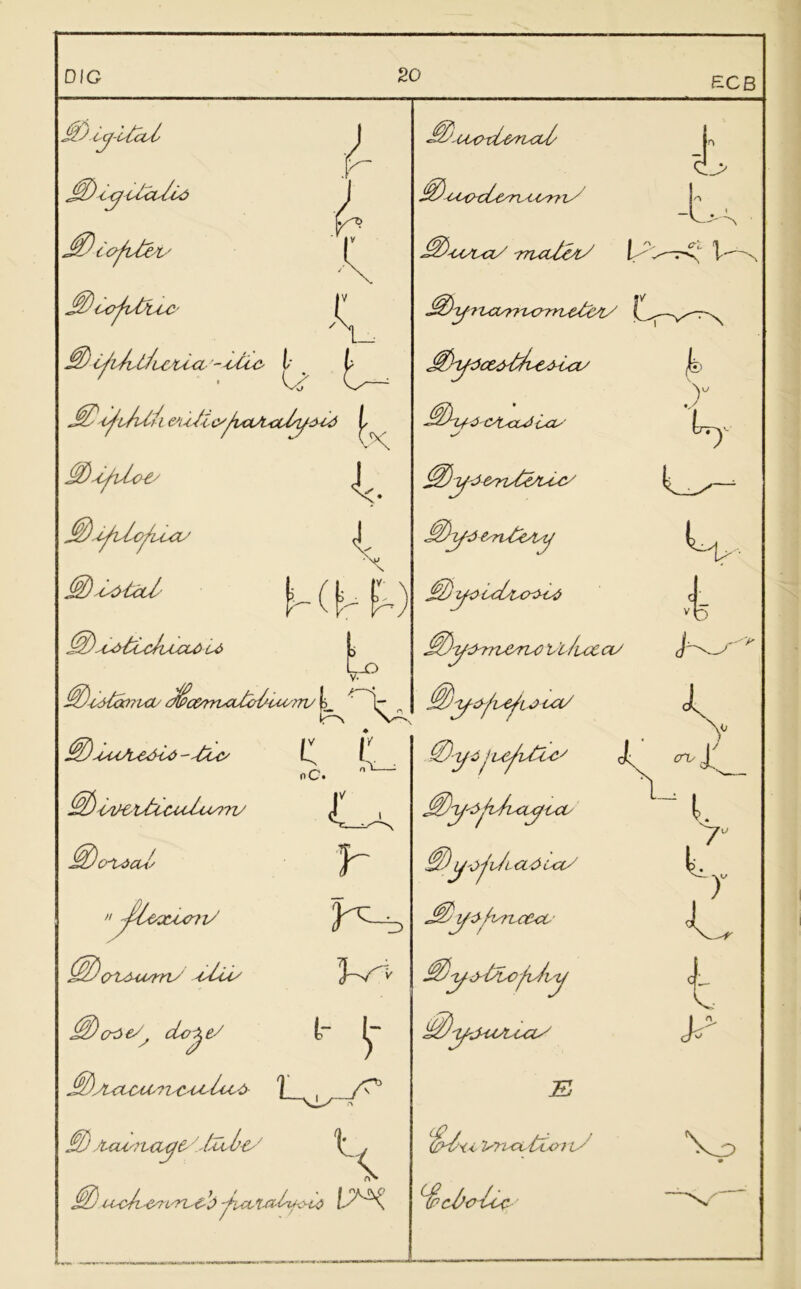 DIG 20 ECB
Digital
Digitalis
Diopter
Dioptric
Diphtheria -itic
Diphtheritic paralysis
Diploe
Diplopia
Distal
Distichiasis
Distoma Haematobium
Diuresis -tic
Diverticulum
Dorsal
" flexion
Dorsum ilii
Dose, doze
Dracunculus
Drainage Tube
Duchenne's paralysis
Duodenal
Duodenum
Dura mater
Dynamometer
Dysaesthesia
Dyscrasia
Dysenteric
Dysentery
Dysidrosis
Dysmenorrhoea
Dyspepsia
Dyspeptic or
Dysphagia
Dysphasia
Dyspnoea
Dystrophy
Dysuria
E
Eburnation
Ecbolic